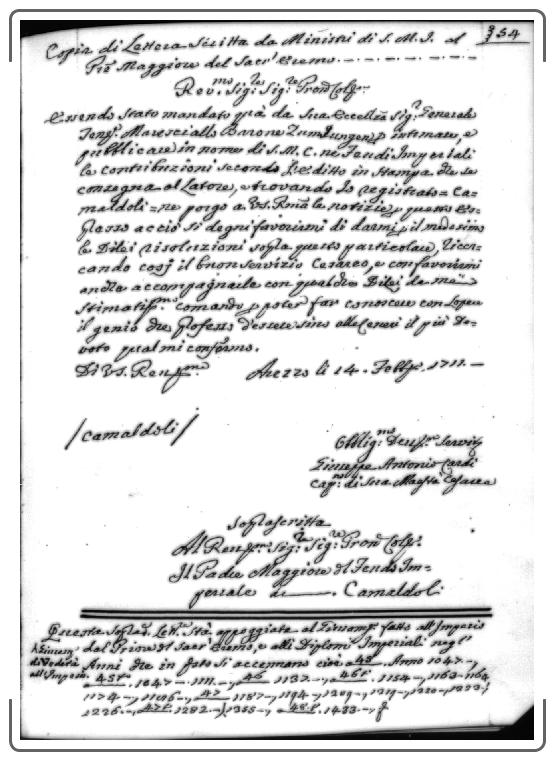 354
Copia di Lettera Scritta da Ministri di S. M. I. al
Pre Maggiore del Sacro Eremo
Rev.mo Sig.re Sig.re Pron Col.mo
Essendo Stato mandato quà da Sua Eccellza Sig.r Generale
Maresciallo Barone Zumjungen p intimare, e
pubblicare in nome di S. M. C. ne Feudi Imperiali
le Contribuzioni secondo l'Editto in Stampa che se
consegna al Latore, e trovando Io registrato Ca-
maldoli ne porgo a VS. Rma le notizie, p questo Es-
presso acciò si degni favorirmi di darmi p il medesimo
le Dilei risoluzioni sopra questo particolare, Ricer-
cando così il buon servizio Cesareo, e con favorirmi
anche accompagnarle con qualche Dilei da me
Stimatiss.mo comando p poter far conoscere con l'opera
il genio che professo d'essere sino alle Ceneri il più De-
voto qual mi confermo.
Di VS. Rev.ma Arezzo li 14. Febb. 1711.
/Camaldoli/
Obblig.mo Servit.
Giuseppe Antonio Cardi
di Sua Maestà Cesarea
Soprascritta
Al Rev.mo Sig.re Sig.re Pron Col.mo
Il Padre Maggiore del Feudo Im-
periale di Camaldoli
Questa Soprad. Lett.ra Stà appoggiata al fatto all'Imperio
dal Priore di Sacr Eremo, e alli Diplomi Imperiali negl'
Anni che in fatto si accennano cioè 45 Anno 1047
all'Imperio. 45t 1047 1111 46 1137 46t 1154 1163 1164
1174 47 1187 1194 1209 1220
1226 47t 1282 1355 48t 1433